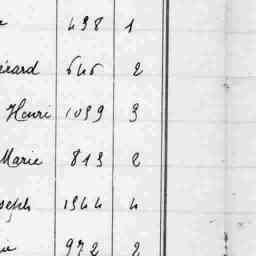 498 1
érard 646 2
Henri 1099 3
Marie 819 2
seph 1944 4
ie 972 2